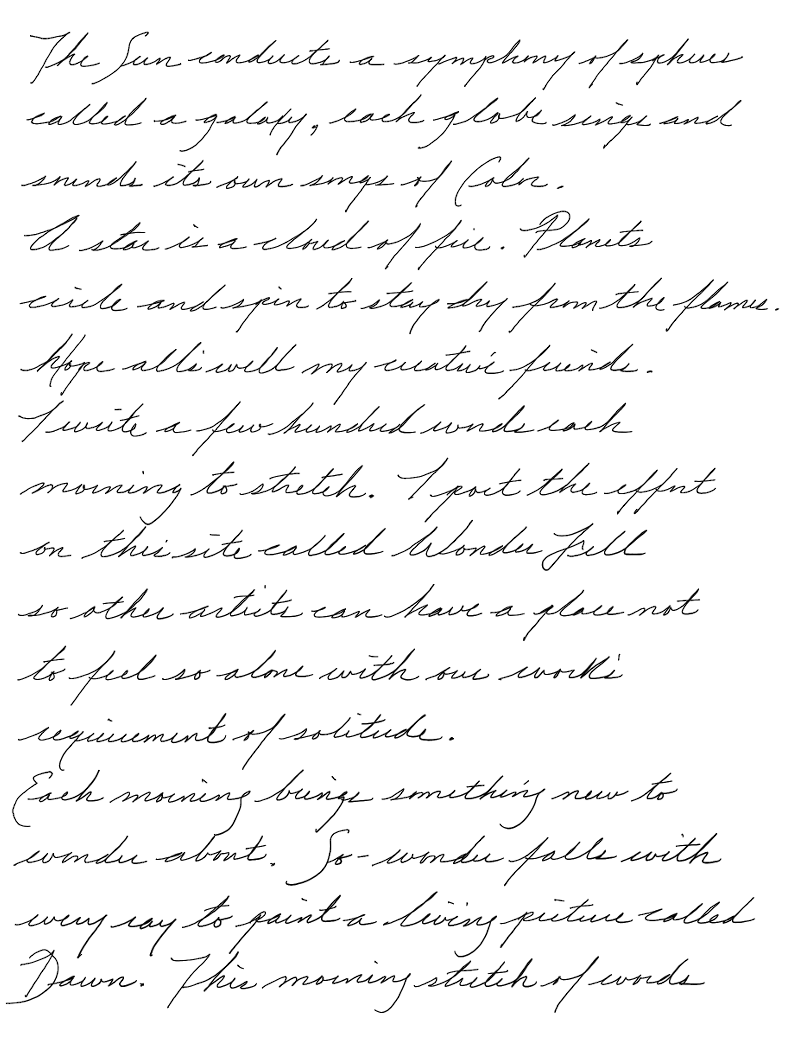 The Sun conducts a symphony of spheres
called a galaxy, each globe sings and
sounds its own songs of Color.
A star is a cloud of fire. Planets
circle and spin to stay dry from the flames.
Hope all's well my creative friends.
I write a few hundred words each
morning to stretch. I post the effort
on this site called Wonder Fell
so other artists can have a place not
to feel so alone with our work's
requirement of solitude.
Each morning brings something new to
wonder about. So - wonder falls with
every ray to paint a living picture called
Dawn. This morning stretch of words